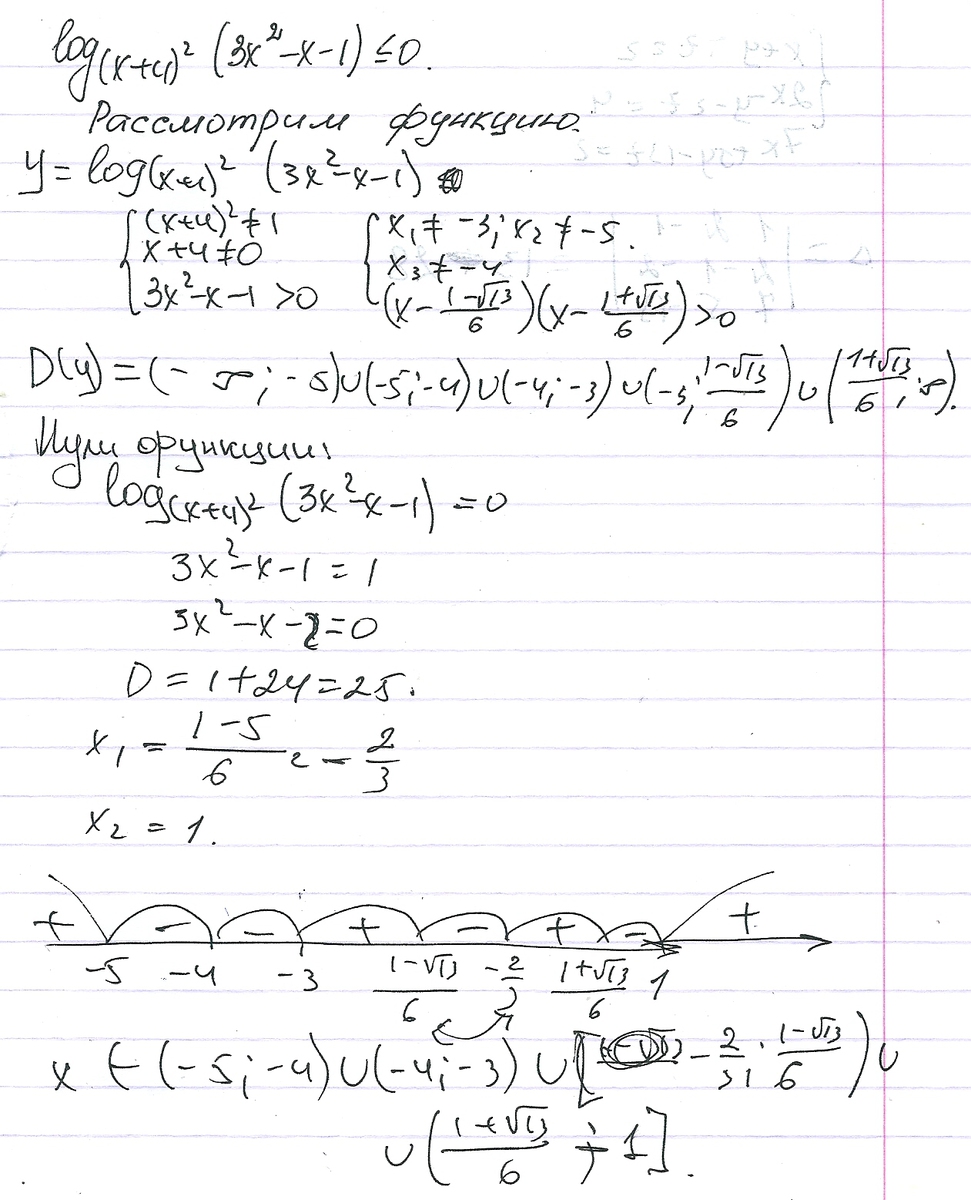 log_{(x+4)^2} (3x^2-x-1) ≤ 0.
Рассмотрим функцию.
y = log_{(x+4)^2} (3x^2-x-1)
{(x+4)^2 ≠ 1 {x_1 ≠ -3; x_2 ≠ -5.
x+4 ≠ 0 x_3 ≠ -4
3x^2-x-1 > 0 (x - (1-√13)/6)(x - (1+√13)/6) > 0
D(y) = (-∞; -5)∪(-5; -4)∪(-4; -3)∪(-3; (1-√13)/6)∪((1+√13)/6; ∞).
Нули функции:
log_{(x+4)^2} (3x^2-x-1) = 0
3x^2-x-1 = 1
3x^2-x-2=0
D = 1+24=25.
x_1 = (1-5)/6 = -2/3
x_2 = 1.
+ - - + - + - +
-5 -4 -3 (1-√13)/6 -2/3 (1+√13)/6 1
x ∈ (-5; -4)∪(-4; -3)∪[-2/3; (1-√13)/6)∪
∪((1+√13)/6; 1].